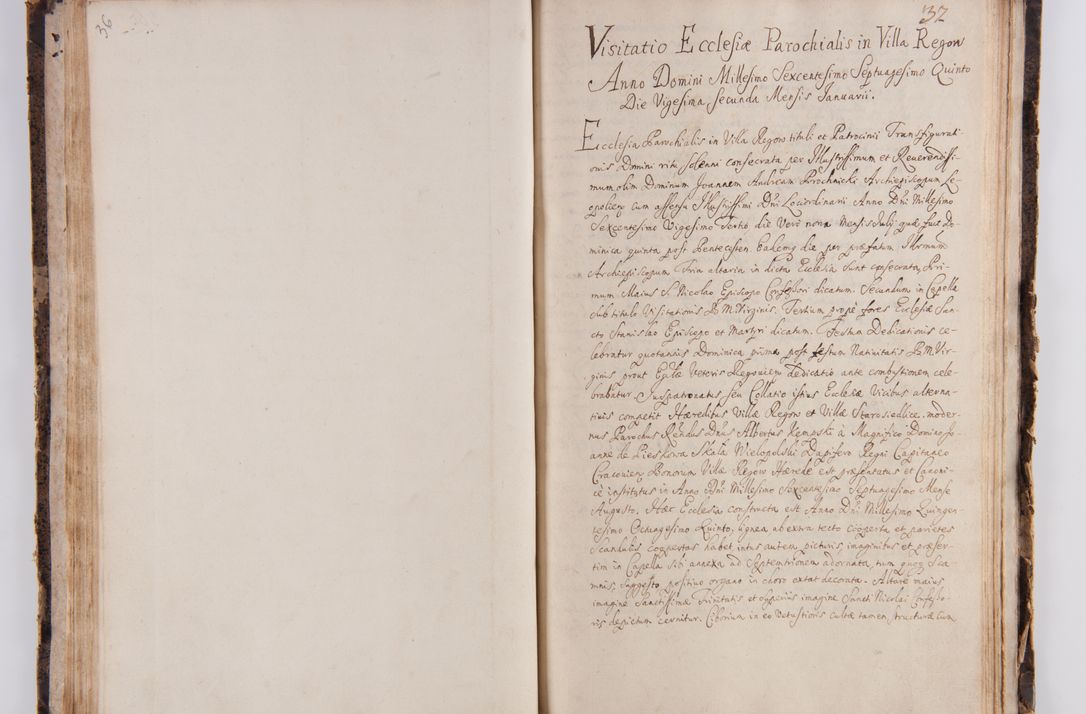 36
32
Visitatio Ecclesiæ Parochialis in Villa Regow
Anno Domini Millesimo Sexcentesimo Septuagesimo Quinto
Die Vigesima secunda Mensis Januarii.
Ecclesia Parochialis in Villa Regow tituli et Patrocinii Transfigurati-
onis Domini ritu solenni consecrata per Illustrissimum et Reverendissi-
mum olim Dominum Joannem Andream Prochnicki Archiepiscopum Le-
opolien cum assensu Illustrissimi Dni Lociordinarii Anno Dni Millesimo
Sexcentesimo Vigesimo Tertio die Vero nona Mensis July quæ fuit Do-
minica quinta post Pentecosten. Eademq die per præfatum Illrmum
Archiepiscopum Tria altaria in dicta Ecclesia sunt consecrata, Pri-
mum Maius S. Nicolao Episcopo Confessori dicatum. Secundum in Capella
sub titulo Visitationis B. M. Virginis. Tertium propè fores Ecclesiæ San-
cto Stanislao Episcopo et Martyri dicatum. Festum Dedicationis ce-
lebratur quotannis Dominica prima post festum Nativitatis B. M. Vir-
ginis prout Ecclæ Veteris Regovien dedicatio ante combustionem cele-
brabatur. Juspatronatus seu Collatio istius Ecclesiæ Vicibus alterna-
tivis competit Hæreditus Villæ Regow et Villæ Starosiedlice. moder-
nus Parochus Rendus Dnus Albertus Kempski à Magnifico Domino Jo-
anne de Pieskowa Skała Wielopolski Dapifero Regni Capitaneo
Cracovien Bonorum Villæ Regow Hærede est præsentatus et Canoni-
cè institutus in Anno Dni Millesimo Sexcentesimo Septuagesimo Mense
Augusto. Hæc Ecclesia constructa est Anno Dni Millesimo Quingen-
tesimo Octuagesimo Quinto, lignea ab extra tecto cooperta et parietes
Scandulis coopertas habet, intus autem picturis, imaginibus et præser-
tim in Capella sibi annexa ad Septemtrionem adornata, tum quoq Sca-
mnis, suggesto positivo organo in choro extat decorata. Altare maius
imagine Sanctissimæ Trinitatis et superius imagine Sancti Nicolai Confesso-
ris depictum cernitur. Ciborium in eo vetustioris cultæ tamen, structuræ cum